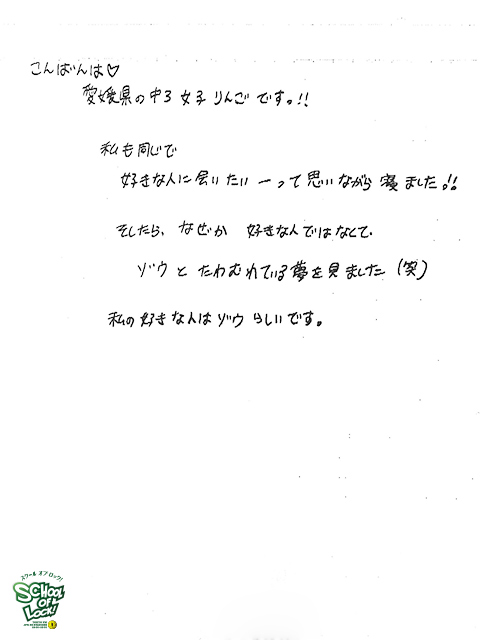 こんばんは♡
愛媛県の中3女子りんごです。!!
私も同じで
好きな人に会いたいーって思いながら寝ました!!
そしたら、なぜか 好きな人ではなくて、
ゾウとたわむれている夢を見ました(笑)
私の好きな人はゾウらしいです。
スクールオブロック!
SCHOOL
OF
LOCK!